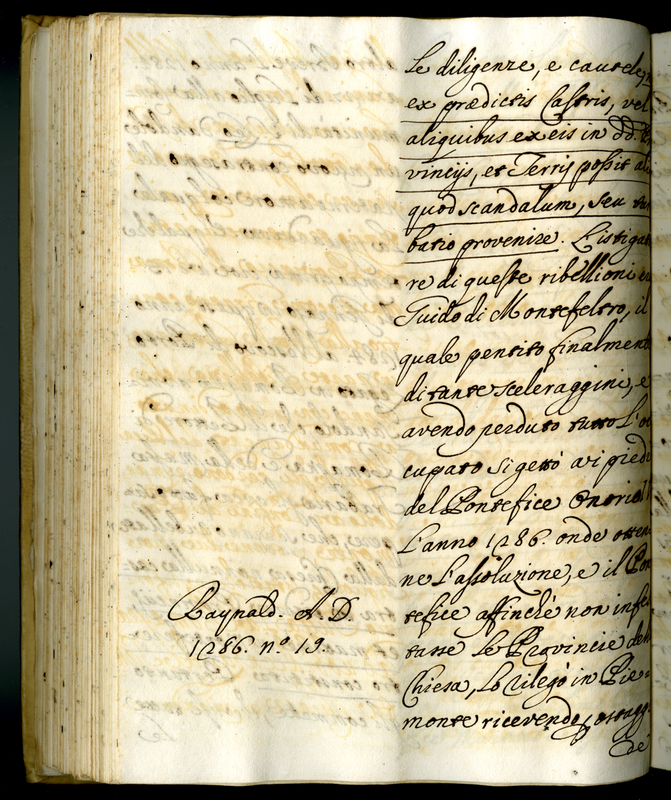 Le diligenze, e cautele,
ex prædictis Castris, vel
aliquibus ex eis in dd.
vincijs, et Terris possit ali
quod scandalum, seu tur
batio provenire. L'istigato
re di queste ribellioni
Guido di Montefeltro, il
quale pentito finalment
di tante sceleraggini, e
avendo perduto tutto l'oc
cupato si gettò ai piedi
del Pontefice Onorio
L'anno 1286. onde otten
ne l'assoluzione, e il Pon
tefice affinchè non infes
tasse le Provincie della
Chiesa, lo rilegò in Pie=
monte ricevendo ostaggi
de
Raynald. A. D.
1286. nº 19.